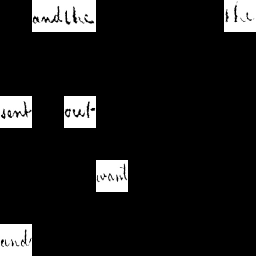 and the the
sent out
want
and